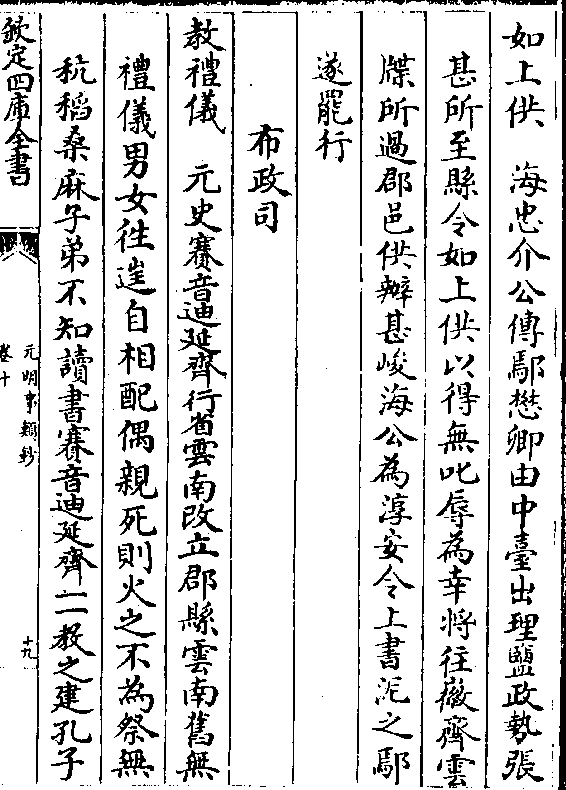 如上供　海忠介公傳鄢懋卿由中臺出理鹽政勢張
甚所至縣令如上供以得無叱辱為幸將往徽齊雲
牒所過郡邑供辦甚峻海公為淳安令上書泥之鄢
遂罷行
布政司
教禮儀　元史賽音迪延齊行省雲南改立郡縣雲南舊無
禮儀男女徃逹自相配偶親死則火之不為祭無
秔稻桑麻子弟不知讀書賽音迪延齊一一教之建孔子
欽定四庫全書
元明事類鈔
卷十
十九